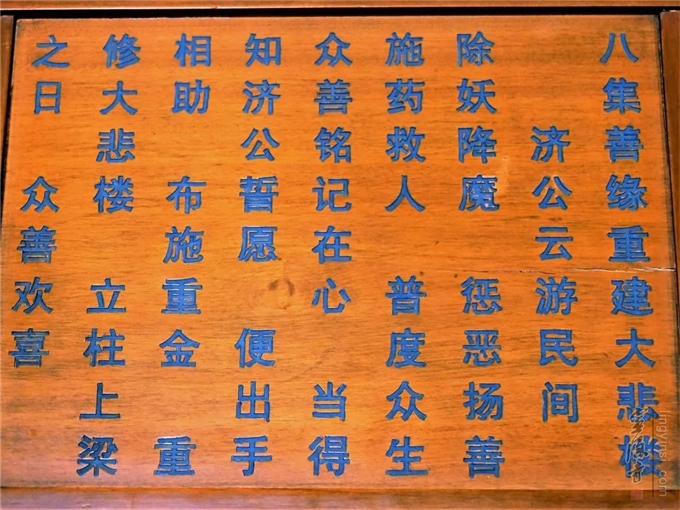 八集善缘重建大悲楼
济公云游民间
除妖降魔 惩恶扬善
施药救人 普度众生
众善铭记在心 当得
知济公誓愿 便出手
相助 布施重金 重
修大悲楼 立柱上梁
之日 众善欢喜